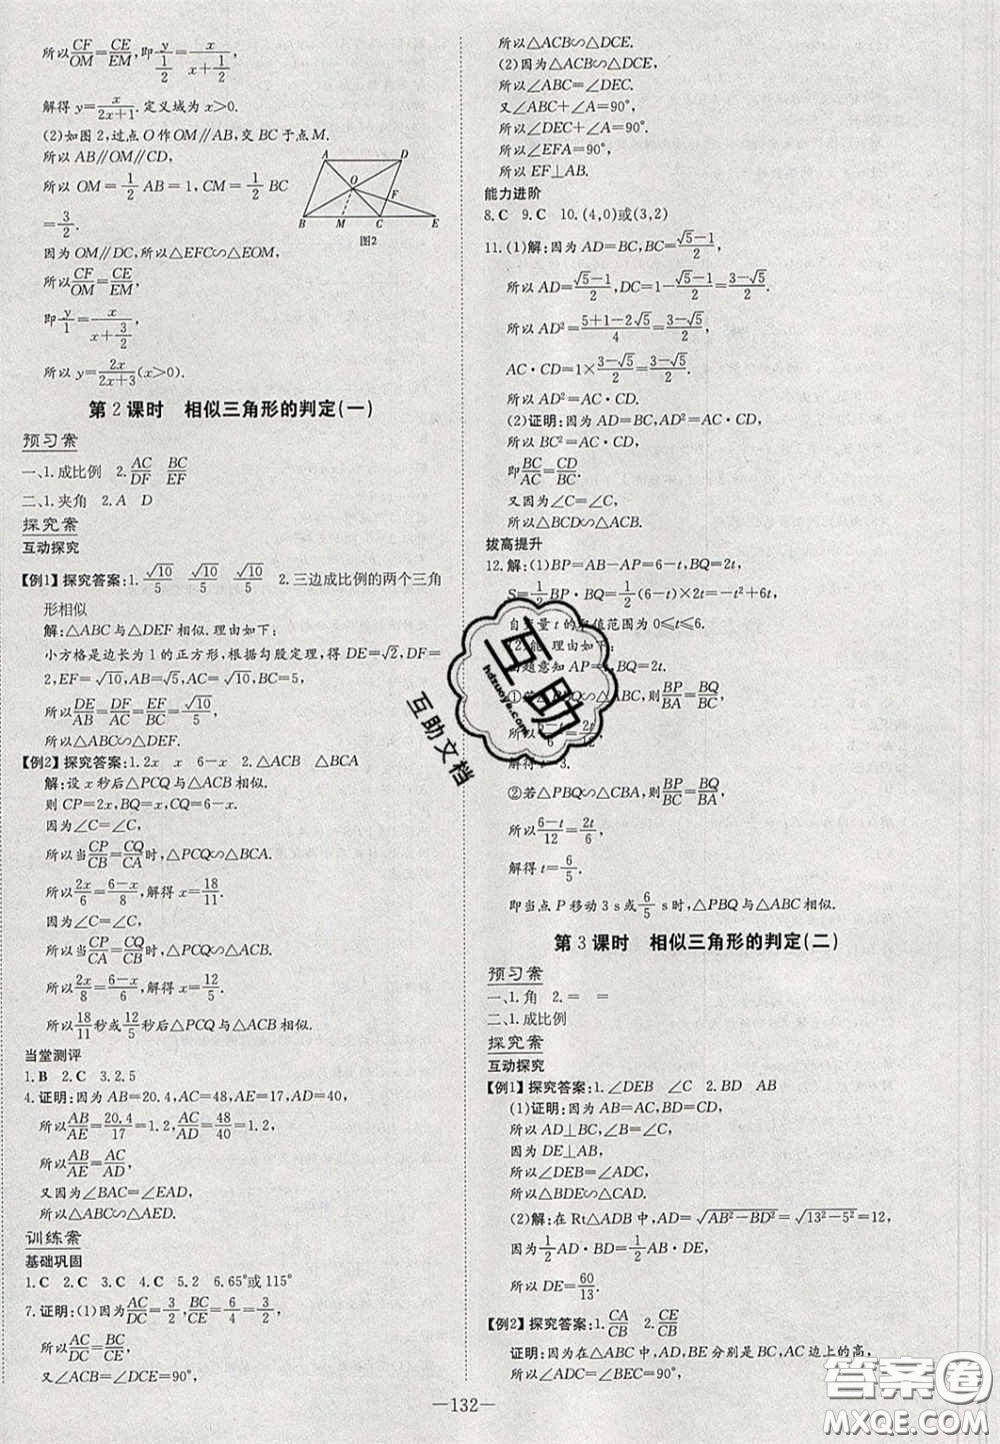 所以CF/OM=CE/EM,即y/(1/2)=x/(x+1/2),
解得y=x/(2x+1).定义域为x>0.
(2)如图2,过点O作OM∥AB,交BC于点M.
所以AB∥OM∥CD,
所以OM=1/2 AB=1,CM=1/2 BC=
3/2.
A D O F B M C E
图2
因为OM∥DC,所以△EFC∽△EOM,
所以CF/OM=CE/EM,
即y/1=x/(x+3/2),
所以y=2x/(2x+3)(x>0).
第2课时 相似三角形的判定(一)
预习案
一、1.成比例 2.AC/DF BC/EF
二、1.夹角 2.A D
探究案
互动探究
【例1】探究答案:1.√10/5 √10/5 √10/5 2.三边成比例的两个三角
形相似
解:△ABC与△DEF相似.理由如下:
小方格是边长为1的正方形,根据勾股定理,得DE=√2,DF=
2,EF=√10,AB=√5,AC=√10,BC=5.
所以DE/AB=DF/AC=EF/BC=√10/5,
所以△ABC∽△DEF.
【例2】探究答案:1.2x x 6-x 2.△ACB △BCA
解:设x秒后△PCQ与△ACB相似.
则CP=2x,BQ=x,CQ=6-x.
因为∠C=∠C,
所以当CP/CB=CQ/CA时,△PCQ∽△BCA.
所以2x/6=(6-x)/8,解得x=18/11.
因为∠C=∠C,
所以CP/CA=CQ/CB时,△PCQ∽△ACB.
所以2x/8=(6-x)/6,解得x=12/5.
所以18/11秒或12/5秒后△PCQ与△ACB相似.
当堂测评
1.B 2.C 3.2.5
4.证明:因为AB=20.4,AC=48,AE=17,AD=40,
所以AB/AE=20.4/17=1.2,AC/AD=48/40=1.2,
所以AB/AE=AC/AD,
又因为∠BAC=∠EAD,
所以△ABC∽△AED.
训练案
基础巩固
1.C 2.C 3.C 4.C 5.2 6.65°或115°
7.证明:(1)因为AC/DC=3/2,BC/CE=6/4=3/2,
所以AC/DC=BC/CE.
又∠ACB=∠DCE=90°,
所以△ACB∽△DCE.
(2)因为△ACB∽△DCE,
所以∠ABC=∠DEC.
又∠ABC+∠A=90°,
所以∠DEC+∠A=90°.
所以∠EFA=90°,
所以EF⊥AB.
能力进阶
8.C 9.C 10.(4,0)或(3,2)
11.(1)解:因为AD=BC,BC=(√5-1)/2,
所以AD=(√5-1)/2,DC=1-(√5-1)/2=(3-√5)/2.
所以AD²=(5+1-2√5)/4=(3-√5)/2,
AC·CD=1×(3-√5)/2=(3-√5)/2.
所以AD²=AC·CD.
(2)证明:因为AD²=AC·CD,
所以BC²=AC·CD,
即BC/AC=CD/BC.
又因为∠C=∠C,
所以△BCD∽△ACB.
拔高提升
12.解:(1)BP=AB-AP=6-t,BQ=2t,
S=1/2 BP·BQ=1/2(6-t)×2t=-t²+6t.
自变量t的取值范围为0≤t≤6.
(2)能.理由如下:
由题意知AP=t,BQ=2t.
①若△ABC,则BP/BA=BQ/BC,
所以
解得t=3.
②若△PBQ∽△CBA,则BP/BC=BQ/BA,
所以(6-t)/12=2t/6,
解得t=6/5.
即当点P移动3 s或6/5 s时,△PBQ与△ABC相似.
第3课时 相似三角形的判定(二)
预习案
一、1.角 2.= =
二、1.成比例
探究案
互动探究
【例1】探究答案:1.∠DEB ∠C 2.BD AB
(1)证明:因为AB=AC,BD=CD,
所以AD⊥BC,∠B=∠C.
因为DE⊥AB,
所以∠DEB=∠ADC,
所以△BDE∽△CAD.
(2)解:在Rt△ADB中,AD=√(AB²-BD²)=√(13²-5²)=12,
因为1/2 AD·BD=1/2 AB·DE,
所以DE=60/13.
【例2】探究答案:1.CA/CB 2.CE/CB
证明:因为在△ABC中,AD,BE分别是BC,AC边上的高,
所以∠ADC=∠BEC=90°,
—132—
互助
hdzuoye.com
互助文档
答案圈
MXQE.COM